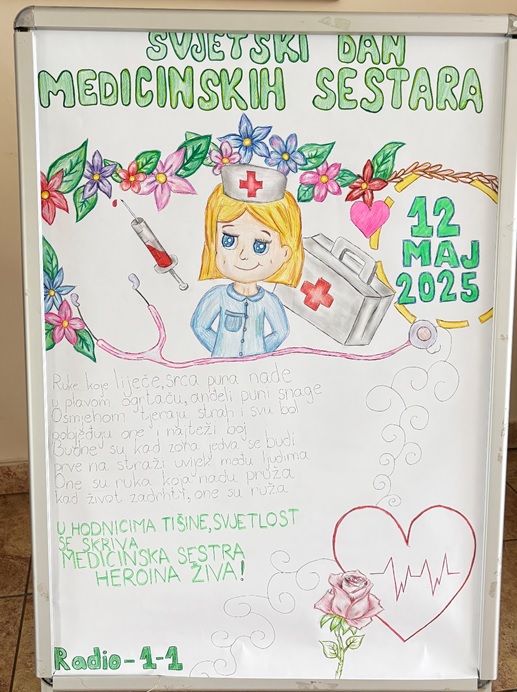 SVJETSKI DAN
MEDICINSKIH SESTARA
12
MAJ
2025
Ruke koje liječe, srca puna nade
u plavom ogrtaču, anđeli puni snage
Osmjehom tjeraju strah i svu bol
pobjeđuju one i najteži boj
Budne su kad zora jedva se budi
prve na straži uvijek među ljudima
One su ruka koja nadu pruža
kad život zadrhti, one su ruža
U HODNICIMA TIŠINE, SVJETLOST
SE SKRIVA
MEDICINSKA SESTRA
HEROINA ŽIVA!
Radio-1-1